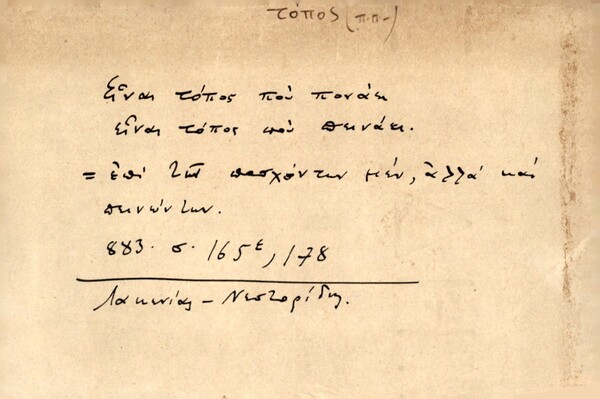 τόπος (π.π.-)
Εἶναι τόπος ποὺ πονάει
εἶναι τόπος ποὺ πεινάει.
= ἐπὶ τῶν πασχόντων μέν, ἀλλὰ καὶ
πεινώντων.
883. σ. 165ε, 178
Λακωνίας - Νεστορίδης.